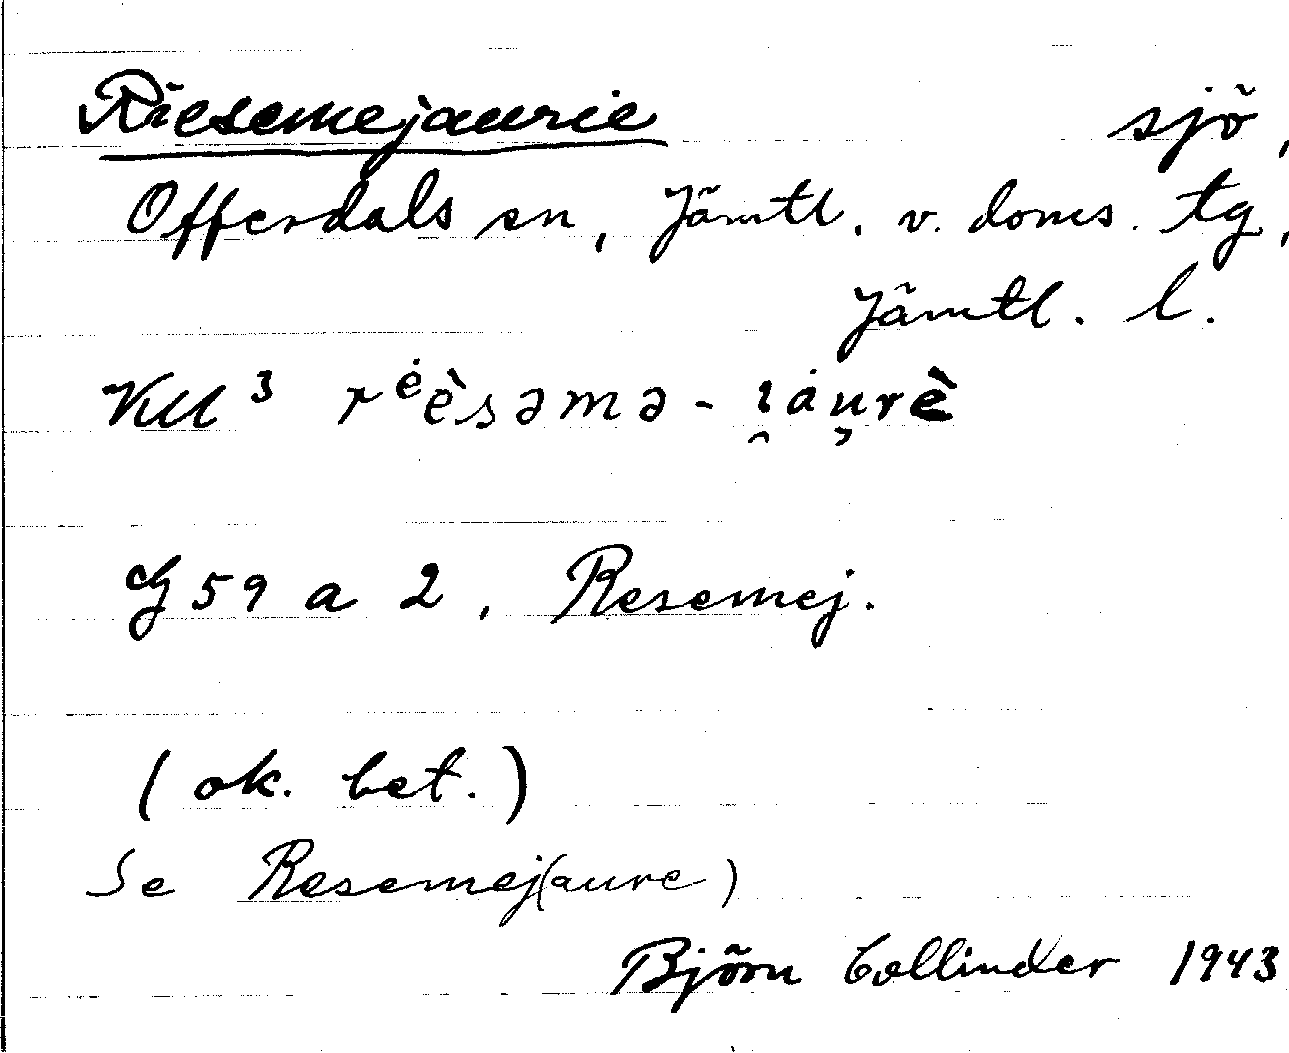 Riesemejaurie sjö,
Offerdals sn, Jämtl. v. doms. tg,
Jämtl. l.
KU³ rėèsəmə-i̯áu̯rè
G59 a 2, Resemej.
(ok. bet.)
Se Resemej(aure)
Björn Collinder 1943